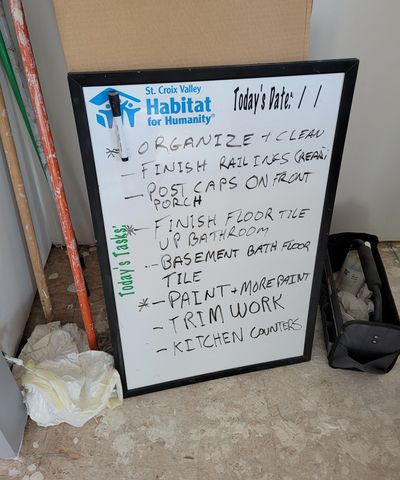 St. Croix Valley
Habitat
for Humanity®
Today's Date: / /
Today's Tasks:
* ORGANIZE + CLEAN
- FINISH RAILINGS (REAR)
- POST CAPS ON FRONT
PORCH
*- FINISH FLOOR TILE
UP BATHROOM
- BASEMENT BATH FLOOR
TILE
*- PAINT + MORE PAINT
- TRIM WORK
- KITCHEN COUNTERS